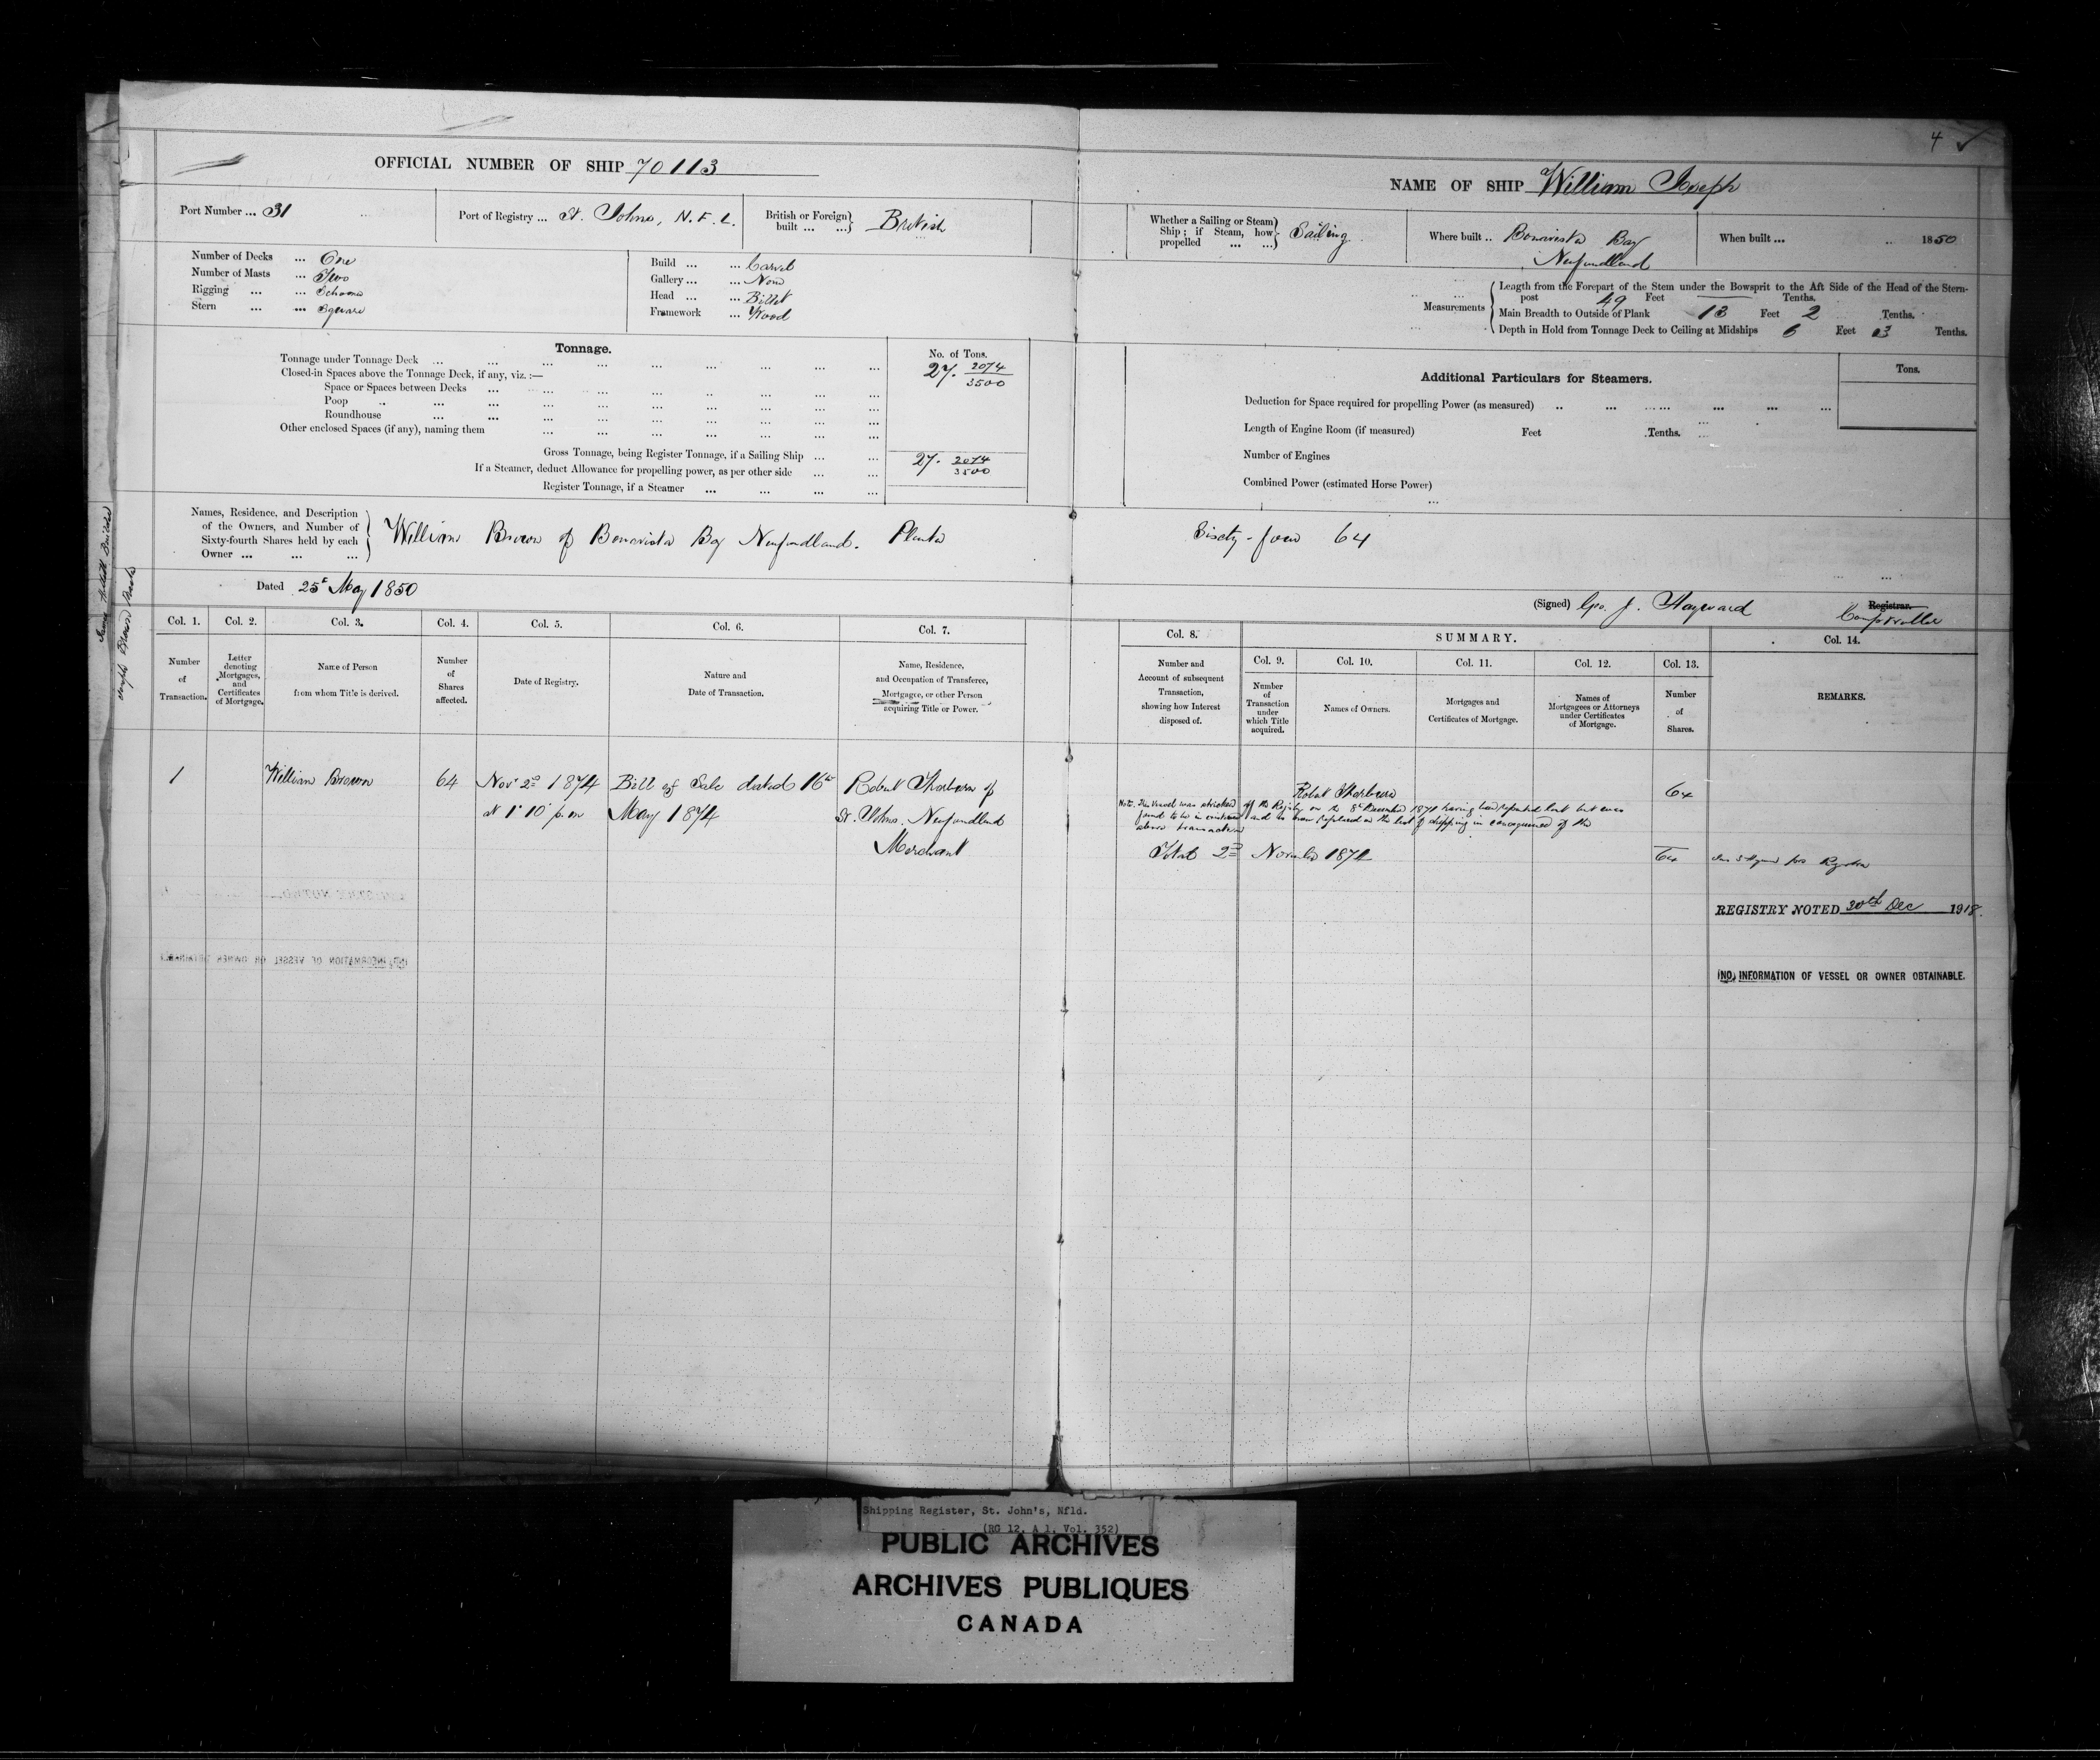 4 ✓
OFFICIAL NUMBER OF SHIP 70113
NAME OF SHIP William Joseph
Port Number ... 31
Port of Registry ... St. Johns, N.F.L.
British or Foreign built ... ...} British
Whether a Sailing or Steam Ship; if Steam, how propelled ... ...} Sailing
Where built .. Bonavista Bay
Newfoundland
When built ... .. 1850
Number of Decks ... One
Number of Masts ... Two
Rigging ... ... Schooner
Stern ... ... Square
Build ... ... Carvel
Gallery ... ... None
Head ... ... Billet
Framework ... Wood
Measurements
Length from the Forepart of the Stem under the Bowsprit to the Aft Side of the Head of the Stern-
post 49 Feet — Tenths.
Main Breadth to Outside of Plank 13 Feet 2 Tenths.
Depth in Hold from Tonnage Deck to Ceiling at Midships 6 Feet 03 Tenths.
Tonnage.
No. of Tons.
Tonnage under Tonnage Deck ... 27. 2074/3500
Closed-in Spaces above the Tonnage Deck, if any, viz. :—
Space or Spaces between Decks ...
Poop ..
Roundhouse
Other enclosed Spaces (if any), naming them
Gross Tonnage, being Register Tonnage, if a Sailing Ship ... 27. 2074/3500
If a Steamer, deduct Allowance for propelling power, as per other side ...
Register Tonnage, if a Steamer ...
Additional Particulars for Steamers.
Tons.
Deduction for Space required for propelling Power (as measured) ..
Length of Engine Room (if measured) Feet Tenths.
Number of Engines
Combined Power (estimated Horse Power)
Names, Residence, and Description
of the Owners, and Number of
Sixty-fourth Shares held by each
Owner ... ... ...
William Brown of Bonavista Bay Newfoundland. Planter
Sixty-four 64
Dated 25th May 1850
(Signed) Geo. J. Hayward Registrar.
Comptroller
Col. 1. Col. 2. Col. 3. Col. 4. Col. 5. Col. 6. Col. 7.
Number of Transaction.
Letter denoting Mortgages, and Certificates of Mortgage.
Name of Person from whom Title is derived.
Number of Shares affected.
Date of Registry.
Nature and Date of Transaction.
Name, Residence, and Occupation of Transferee, Mortgagee, or other Person acquiring Title or Power.
Col. 8.
Number and Account of subsequent Transaction, showing how Interest disposed of.
SUMMARY.
Col. 9. Col. 10. Col. 11. Col. 12. Col. 13. Col. 14.
Number of Transaction under which Title acquired.
Names of Owners.
Mortgages and Certificates of Mortgage.
Names of Mortgagees or Attorneys under Certificates of Mortgage.
Number of Shares.
REMARKS.
1 William Brown 64 Novr 2nd 1874 Bill of Sale dated 16th Robert Thorburn of
at 1.10 p.m May 1874 St. Johns. Newfoundland
Merchant
Robert Thorburn 64
Note. This Vessel was striked off the Registry on the 8th December 1871 having been reported lost but was
found to be in existence and has been replaced on the list of shipping in consequence of the
above transaction
Total 2nd November 1874 64
REGISTRY NOTED 30th Dec 1918.
(NO) INFORMATION OF VESSEL OR OWNER OBTAINABLE.
Shipping Register, St. John's, Nfld.
(RG 12, A 1, Vol. 352)
PUBLIC ARCHIVES
ARCHIVES PUBLIQUES
CANADA